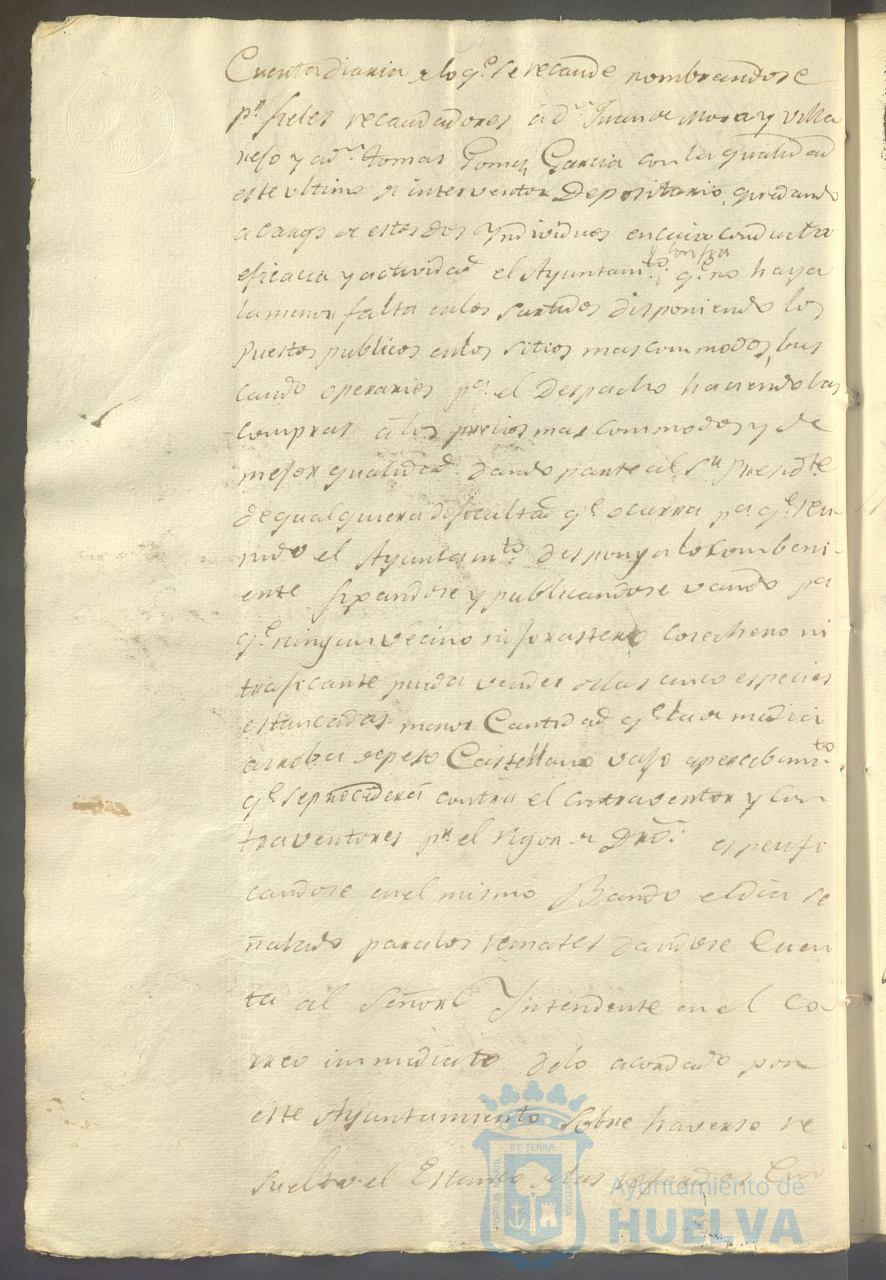 Cuenta diaria de lo q.e se recaude nombrandose
p.r fieles recaudadores á d.n Juan de Mora y Villa
rejo y á d.n tomas Gomez Garcia con la qualidad
este ultimo de interventor Depositario, quedando
a cargo de estos dos Yndividuos en cuia conducta
eficacia y actividad el Ayuntam.to confia q.e no haya
la menor falta en los surtidos disponiendo los
Puestos publicos en los sitios mas commodos, bus
cando operarios p.a el Despacho haciendo las
compras á los precios mas commodos y de
mejor qualidad dando parte al S.r Presid.te
de qualquiera dificultad q.e ocurra p.a q.e reu-
nido el Ayuntam.to disponga lo combeni-
ente fixandose y publicandose vando p.a
q.e ningun vecino ni forastero cosechero ni
traficante pueda vender de las cinco especies
estancadas menor Cantidad q.e la de media
arroba de peso Castellano vajo apercibim.to
q.e se procederá contra el contraventor y con
traventores p.r el rigor de Dro. especifi
candose en el mismo Bando el dia se
ñalado para los remates dandose Cuen
ta al Señor Intendente en el Co-
rreo immediato de lo acordado por
este Ayuntamiento sobre haverse re
suelto el Estanco de las referidas
ET TERRÆ
PORTUS MARIS
CUSTODIA
Ayuntamiento de
HUELVA